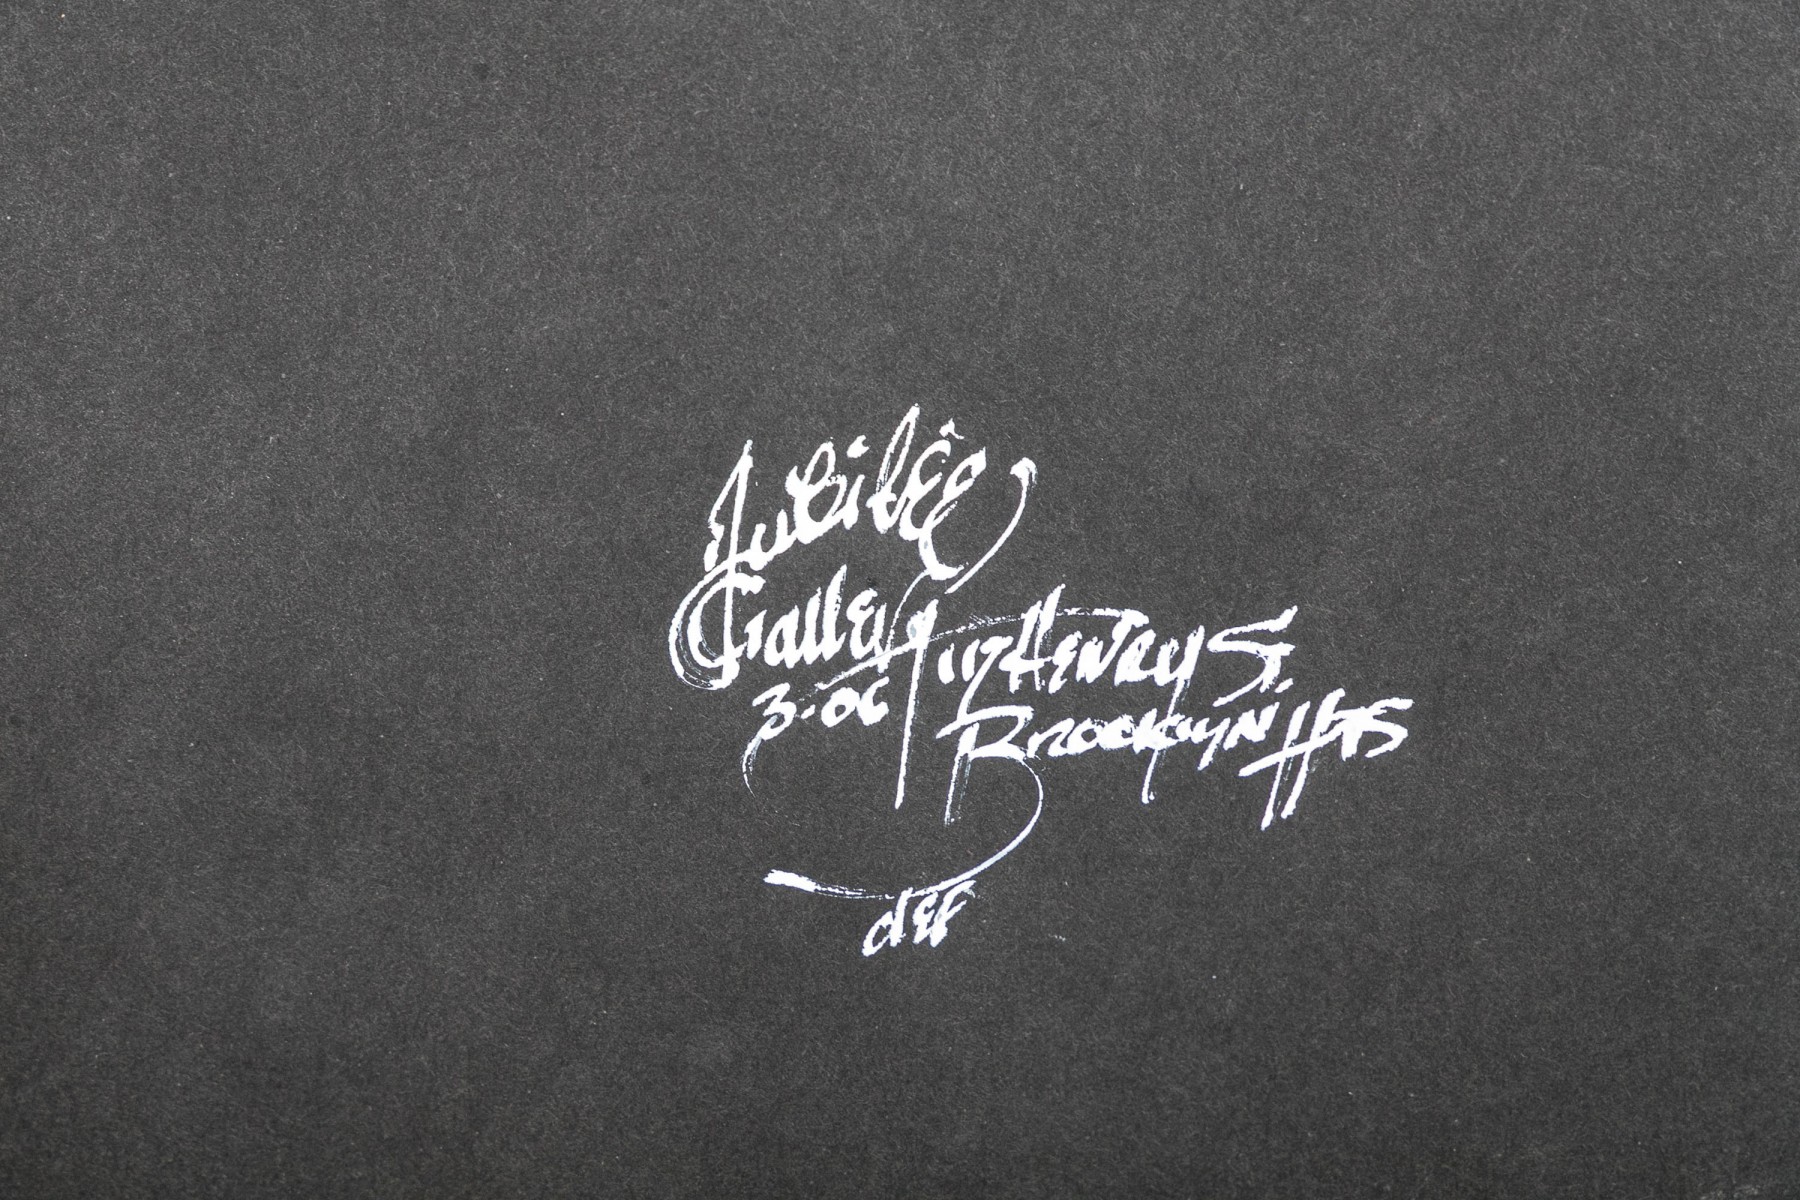 Jubilee
Gallery 117 Henry St.
3-06 Brooklyn Hts
def